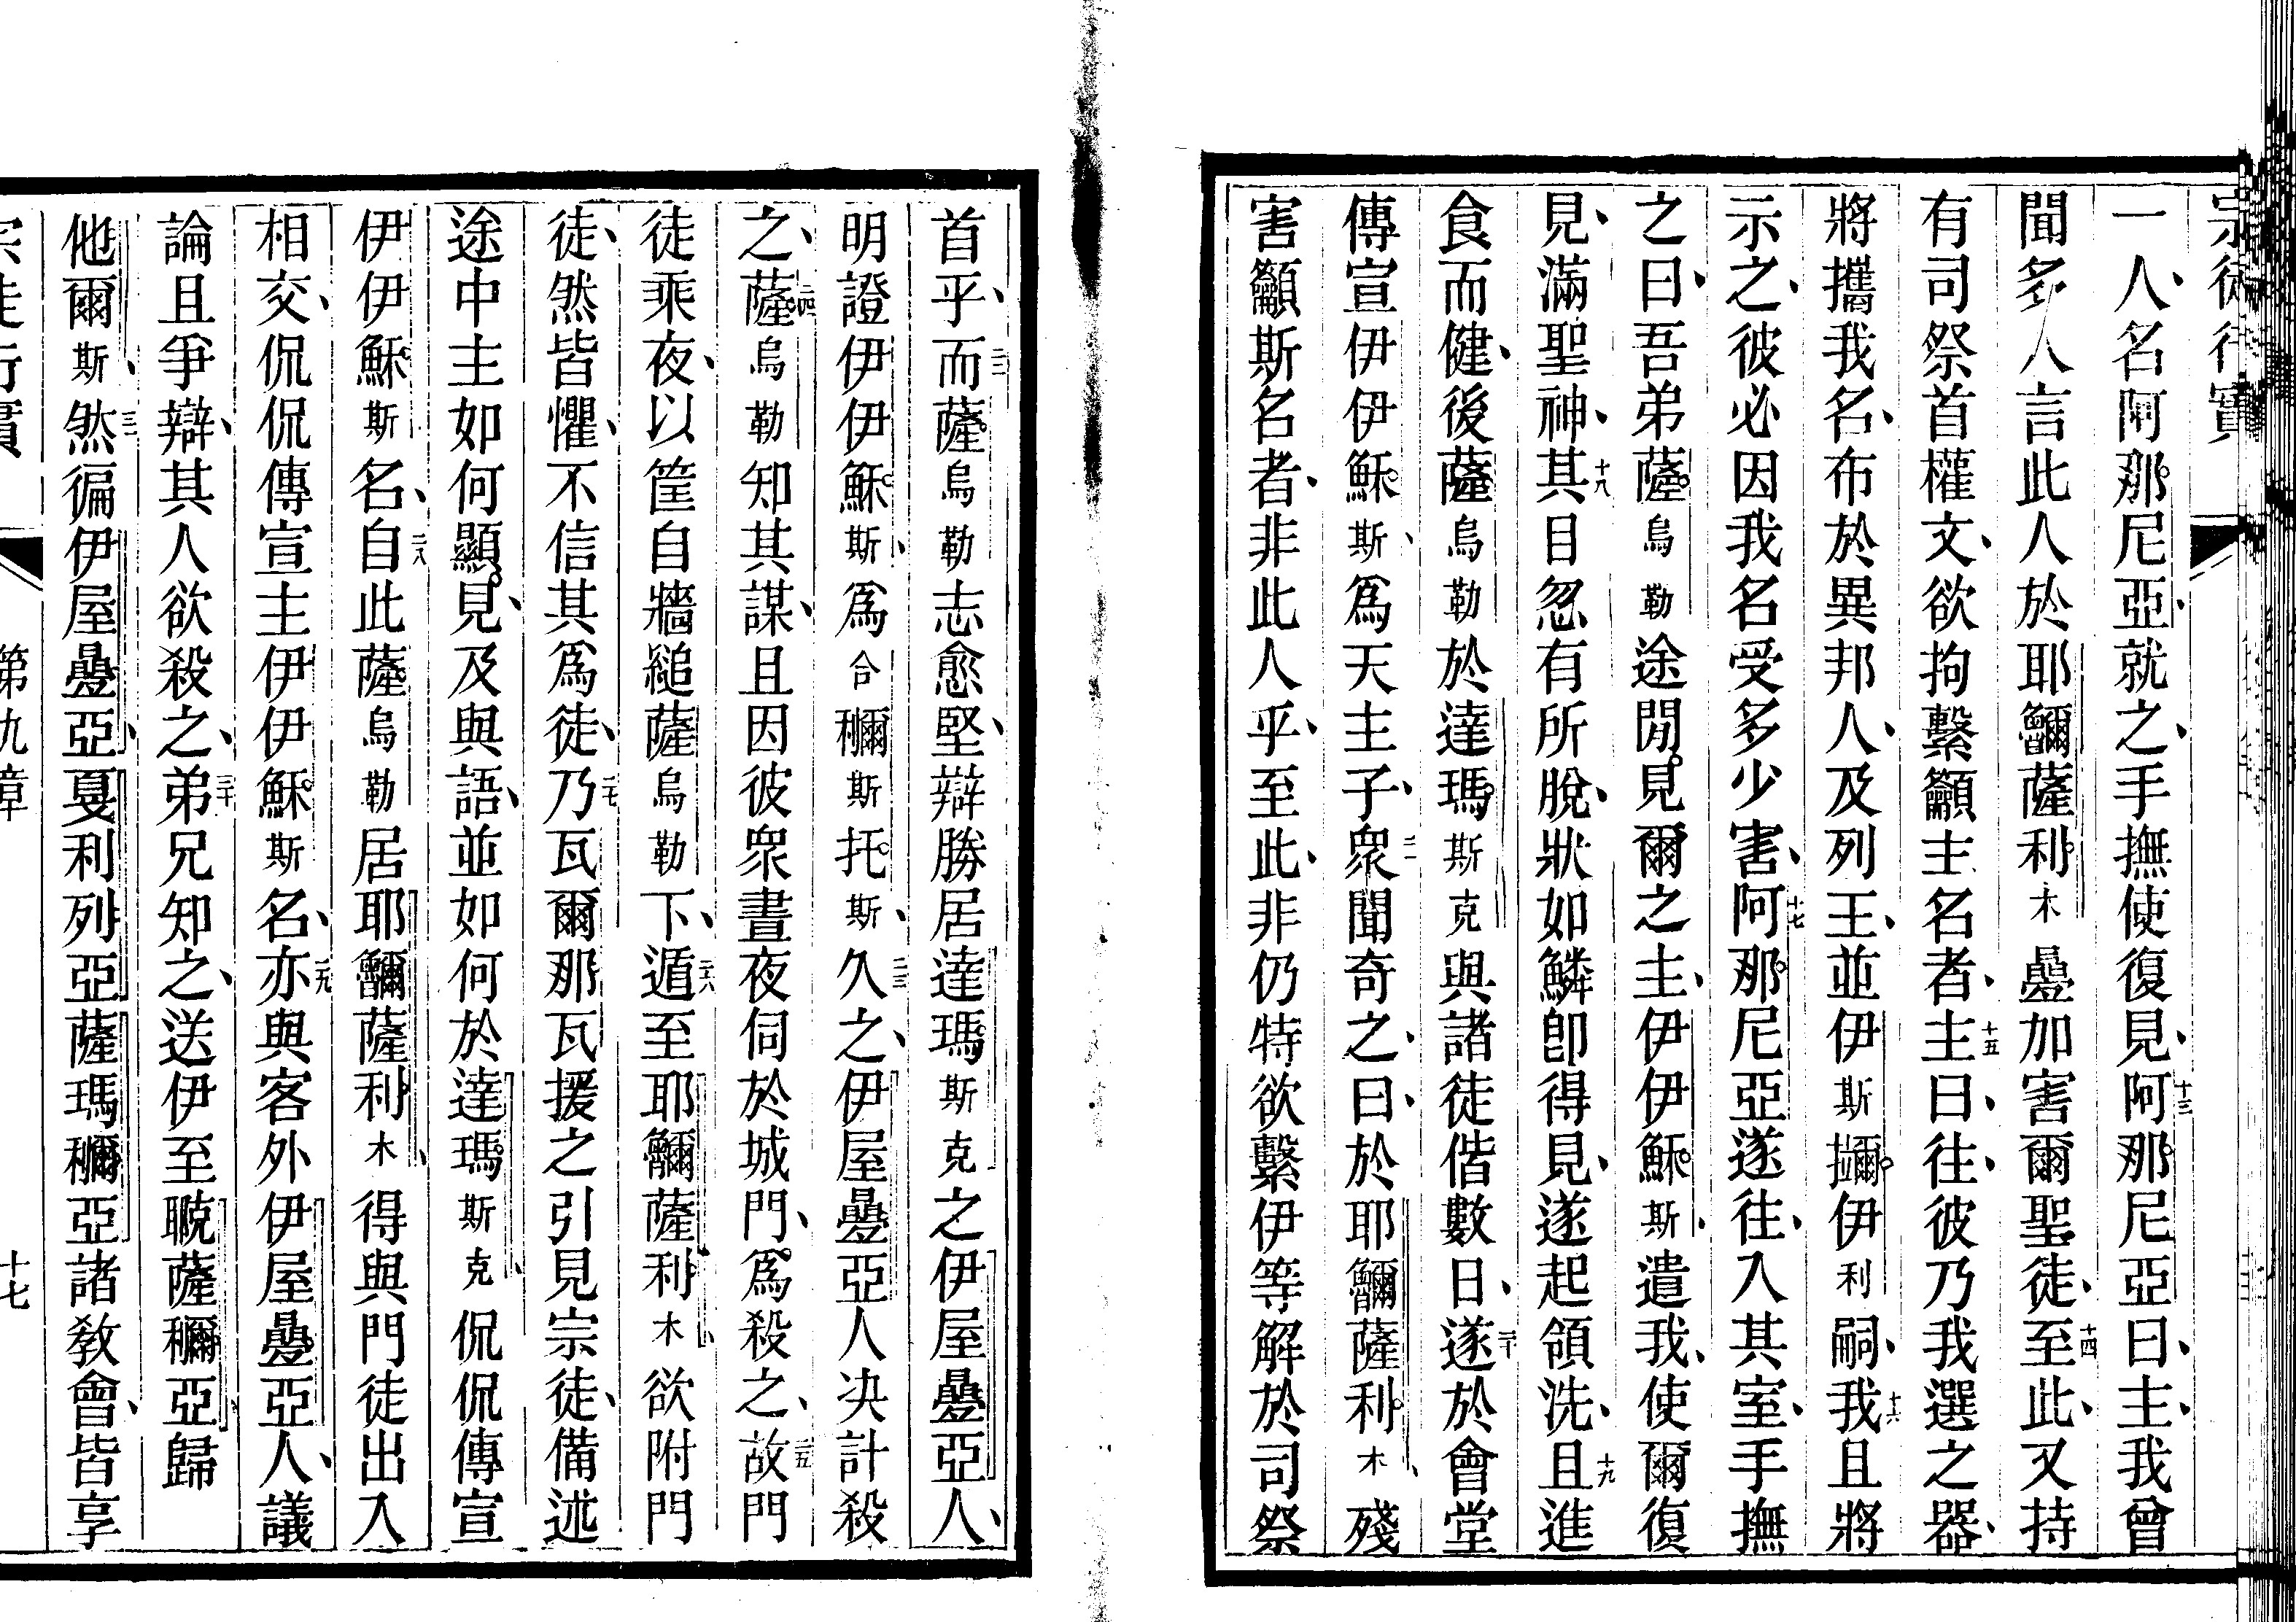 宗徒行實
一人名阿那尼亞就之手撫使復見十三阿那尼亞曰主我曾
聞多人言此人於耶𬹏薩利木曡加害爾聖徒十四至此又持
有司祭首權文欲拘繫籲主名者十五主曰往彼乃我選之器
將攜我名布於異邦人及列王並伊斯㩶伊利嗣十六我且將
示之彼必因我名受多少害十七阿那尼亞遂往入其室手撫
之曰吾弟薩烏勒途間見爾之主伊伊穌斯遣我使爾復
見滿聖神十八其目忽有所脫狀如鱗卽得見遂起領洗十九且進
食而健後薩烏勒於達瑪斯克與諸徒偕數日二十遂於會堂
傳宣伊伊穌斯爲天主子二一衆聞奇之曰於耶𬹏薩利木殘
害籲斯名者非此人乎至此非仍特欲繫伊等解於司祭
首乎二二而薩烏勒志愈堅辯勝居達瑪斯克之伊屋曡亞人
明證伊伊穌斯爲合穪斯托斯二三久之伊屋曡亞人决計殺
之二四薩烏勒知其謀且因彼衆晝夜伺於城門爲殺之二五故門
徒乘夜以筐自牆縋薩烏勒下二六遁至耶𬹏薩利木欲附門
徒然皆懼不信其爲徒二七乃瓦爾那瓦援之引見宗徒備述
途中主如何顯見及與語並如何於達瑪斯克侃侃傳宣
伊伊穌斯名二八自此薩烏勒居耶𬹏薩利木得與門徒出入
相交侃侃傳宣主伊伊穌斯名二九亦與客外伊屋曡亞人議
論且爭辯其人欲殺之三十弟兄知之送伊至㬠薩穪亞歸
他爾斯三一然徧伊屋曡亞戛利列亞薩瑪穪亞諸教會皆享
宗徒行實
第九章
十七